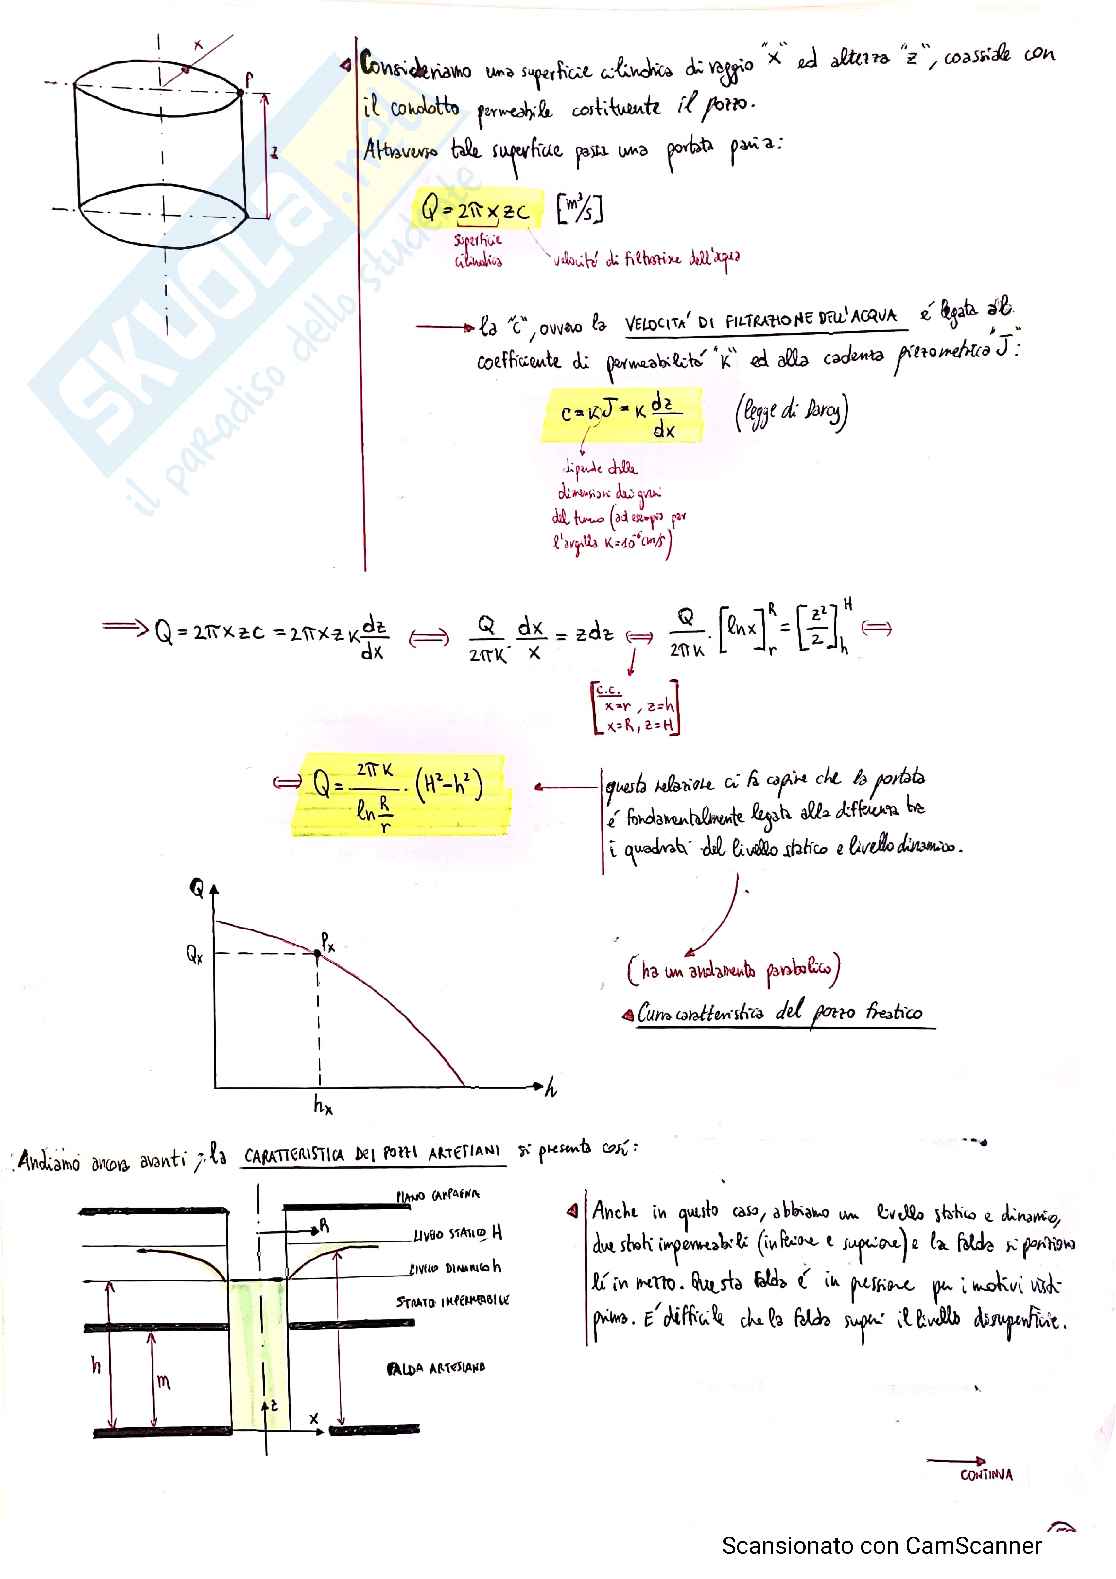 Consideriamo una superficie cilindrica di raggio "x" ed altezza "z", coassiale con
il condotto permeabile costituente il pozzo.
Attraverso tale superficie passa una portata pari a:
x
P
z
Q = 2πx z c [m³/s]
superficie
cilindrica
velocità di filtrazione dell'acqua
la "c", ovvero la VELOCITA' DI FILTRAZIONE DELL'ACQUA é legata al
coefficiente di permeabilità "K" ed alla cadenza piezometrica "J":
c = KJ = K dz/dx (legge di Darcy)
dipende dalle
dimensioni dei grani
del terreno (ad esempio per
l'argilla K=10⁻⁶ cm/s)
⟹ Q = 2πxzc = 2πxzK dz/dx ⟺ Q/2πK · dx/x = zdz ⟺ Q/2πK · [lnx]ᴿᵣ = [z²/2]ᴴₕ ⟺
c.c.
x=r, z=h
x=R, z=H
⟺ Q = 2πK/ln R/r · (H²-h²)
questa relazione ci fa capire che la portata
é fondamentalmente legata alla differenza tra
i quadrati del livello statico e livello dinamico.
(ha un andamento parabolico)
Curva caratteristica del pozzo freatico
Q
Qx
Px
hx
h
Andiamo ancora avanti; la CARATTERISTICA DEI POZZI ARTESIANI si presenta così:
PIANO CAMPAGNA
R
LIVELLO STATICO H
LIVELLO DINAMICO h
STRATO IMPERMEABILE
FALDA ARTESIANA
h
m
z
x
Anche in questo caso, abbiamo un livello statico e dinamico,
due strati impermeabili (inferiore e superiore) e la falda si posiziona
lì in mezzo. Questa falda é in pressione per i motivi visti
prima. E' difficile che la falda superi il livello di superficie.
CONTINUA
Scansionato con CamScanner
SKUOLA.net
il paradiso dello studente